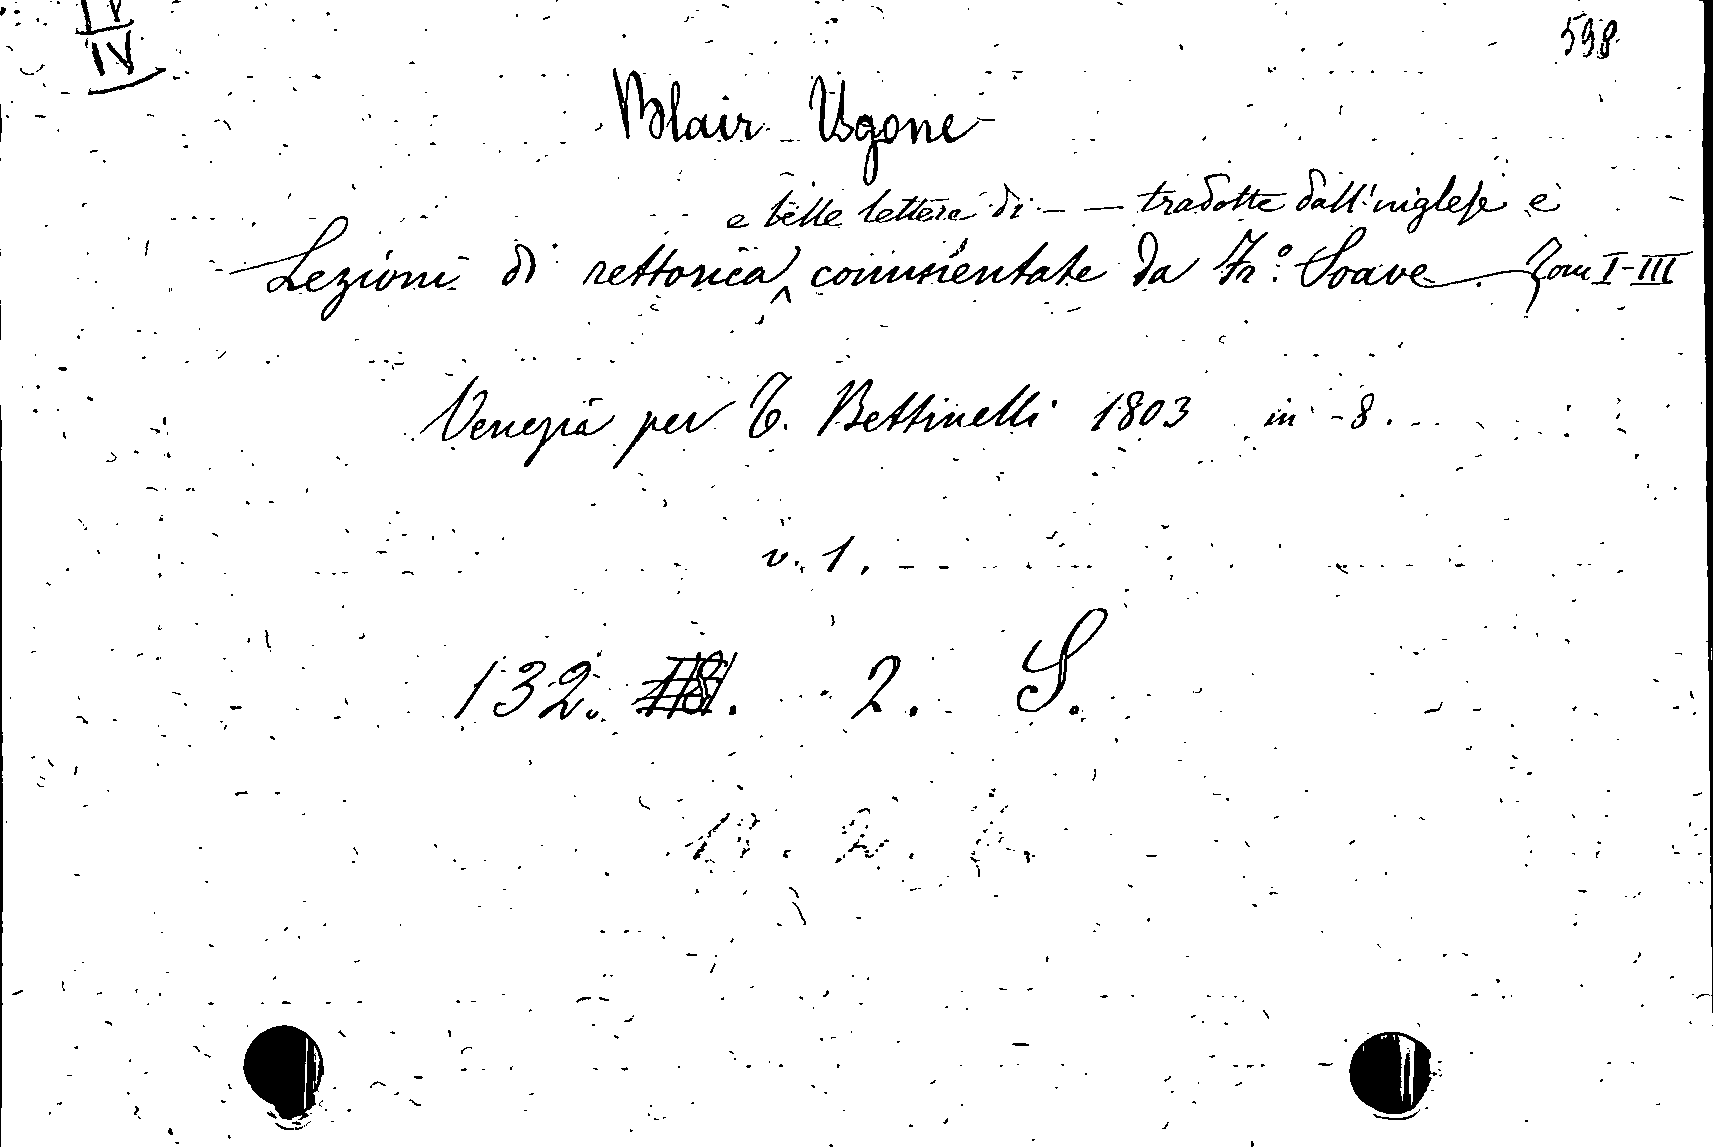 IV
598
Blair Ugone
e belle lettere di - — tradotte dall'inglese e
Lezioni di rettorica ^ commentate da Fr.º Soave. Tom I-III
Venezia per T. Bettinelli 1803 in -8.
v. 1.
132. 2. S.